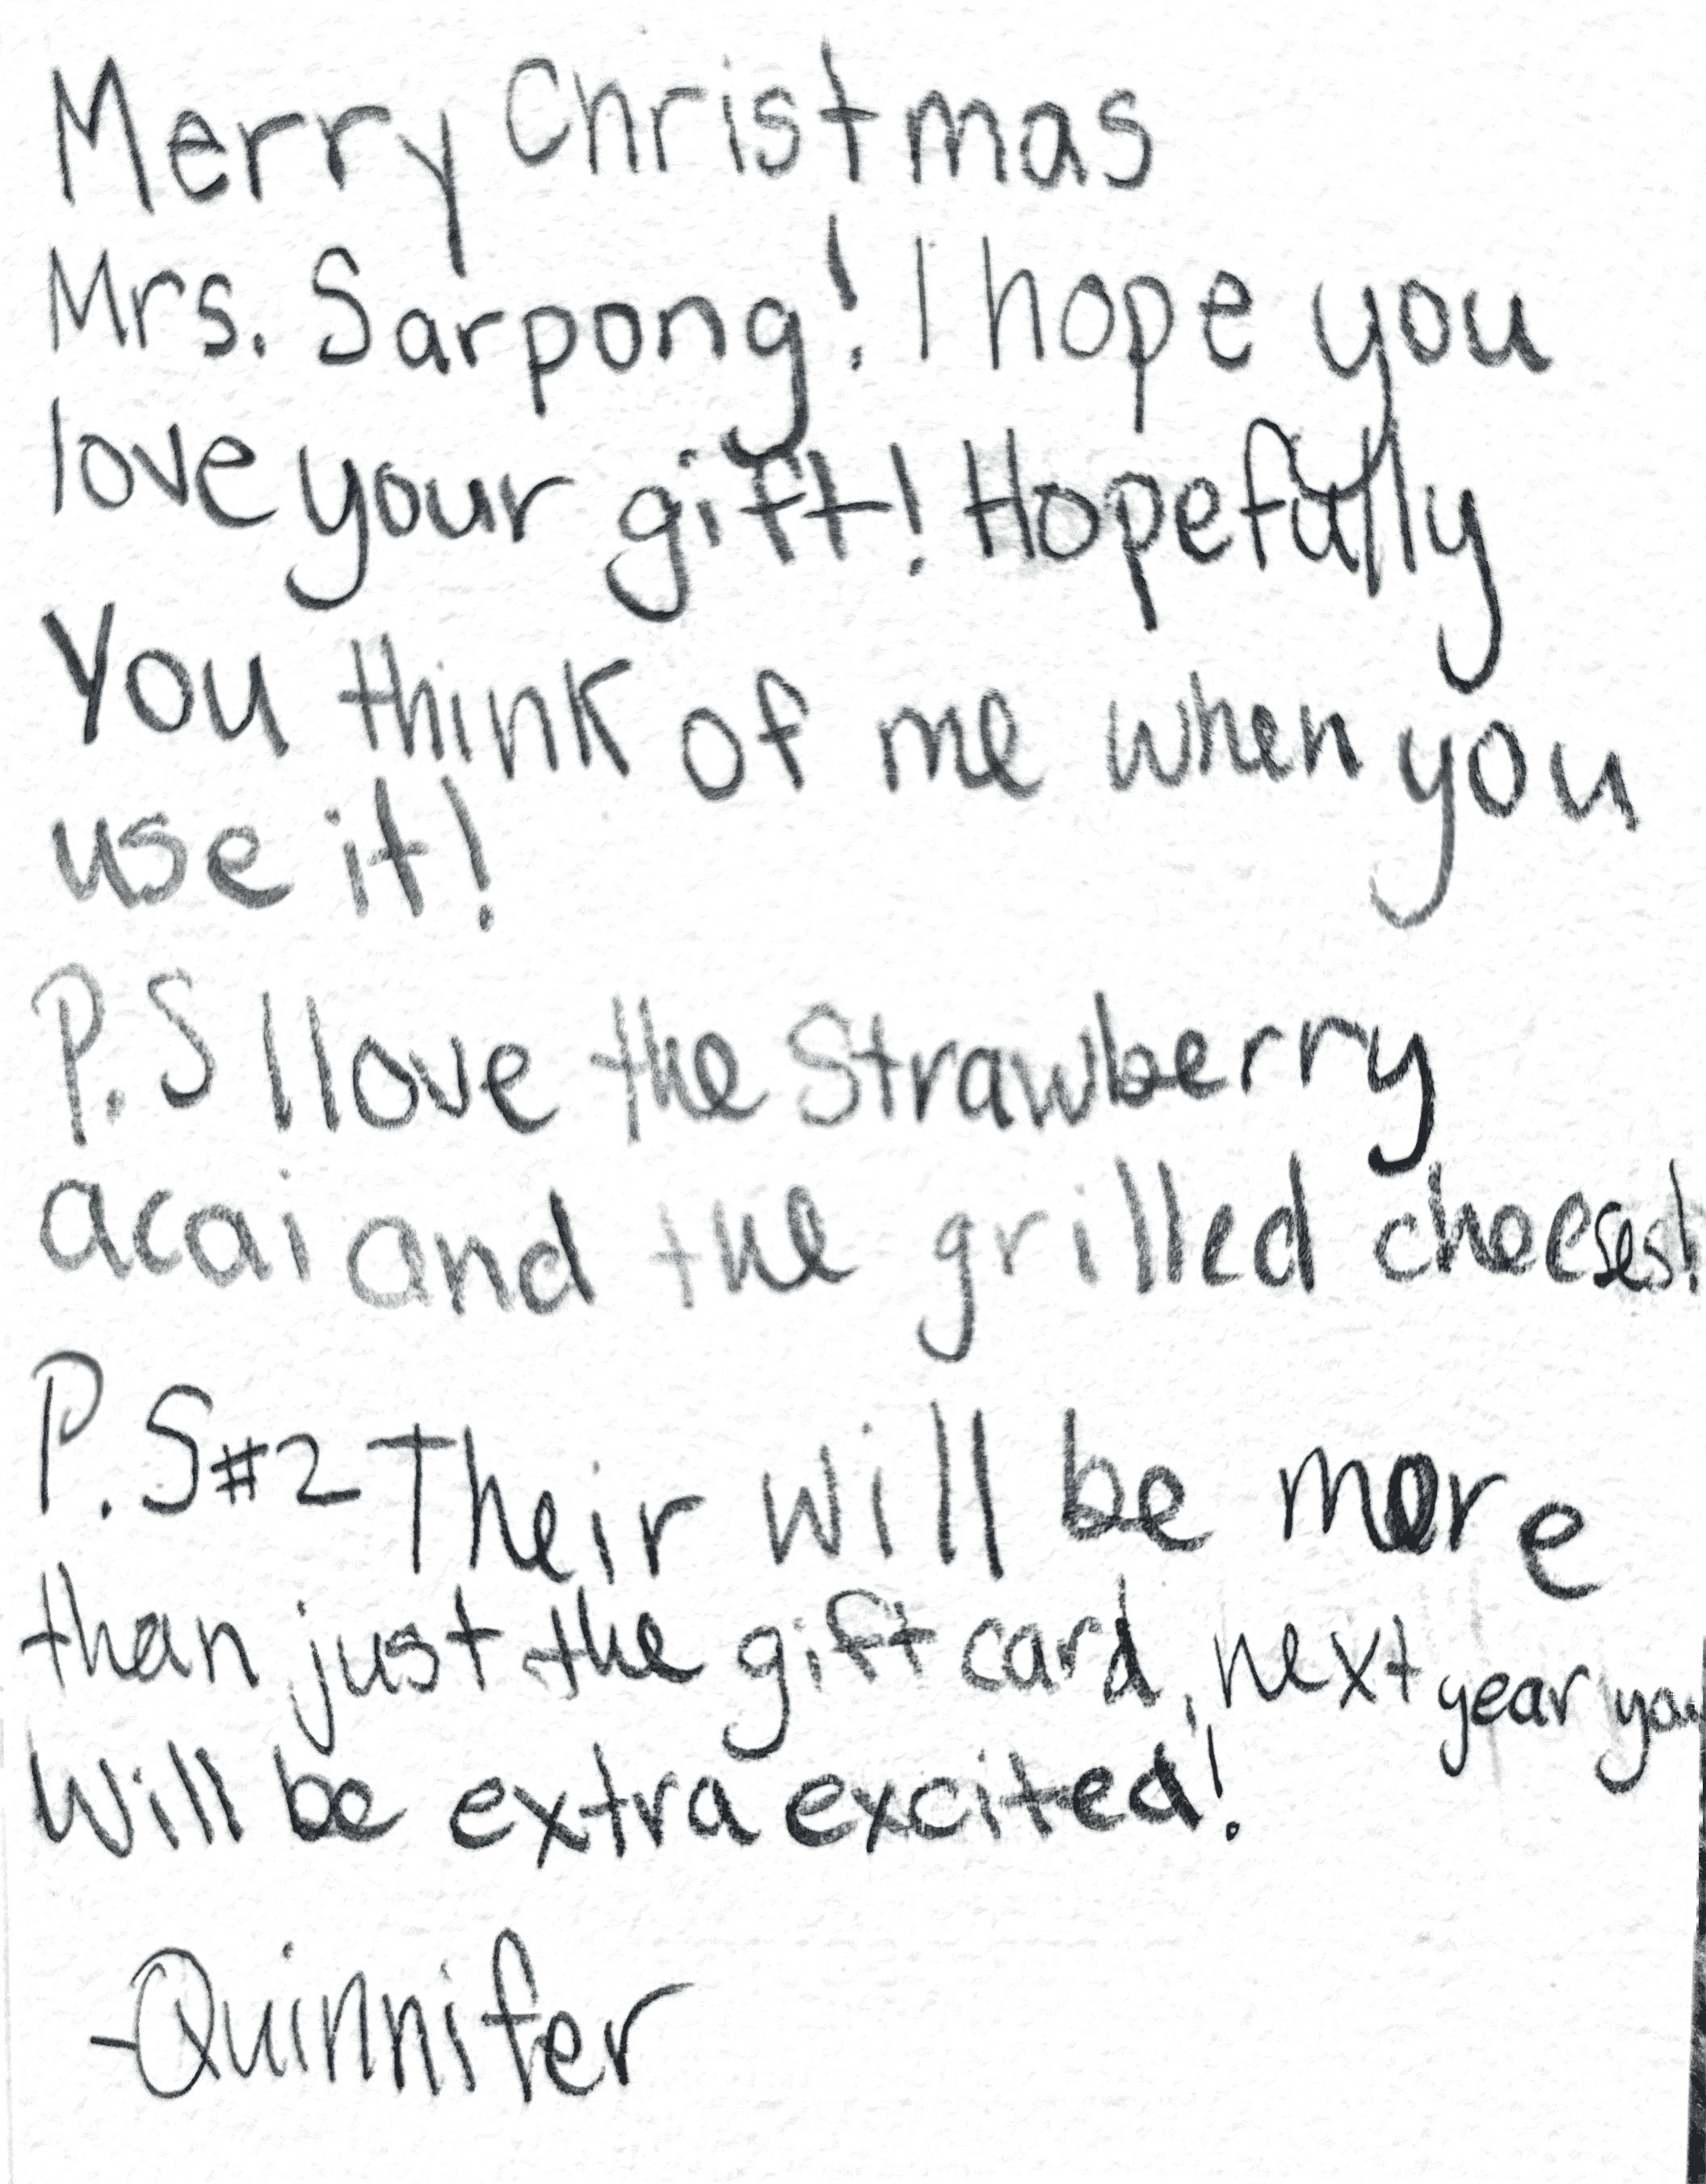 Merry Christmas
Mrs. Sarpong! I hope you
love your gift! Hopefully
You think of me when you
use it!
P.S I love the Strawberry
acai and the grilled cheeses!
P.S #2 Their will be more
than just the gift card, next year you
Will be extra excited!
-Quinnifer